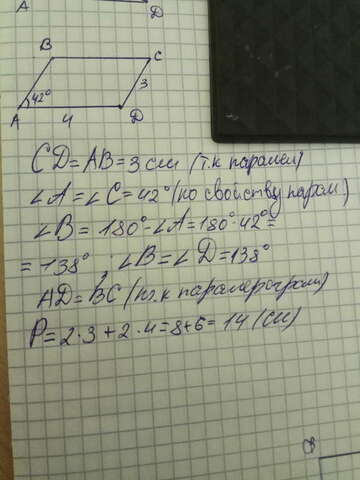 A D
B C
42° 3
A 4 D
CD=AB=3 см (т.к парамел)
∠A=∠C=42° (по свойству парам)
∠B=180°-∠A=180°-42°=
=138°, ∠B=∠D=138°
AD=BC (т.к паралерограм)
P=2·3+2·4=8+6=14 (см)